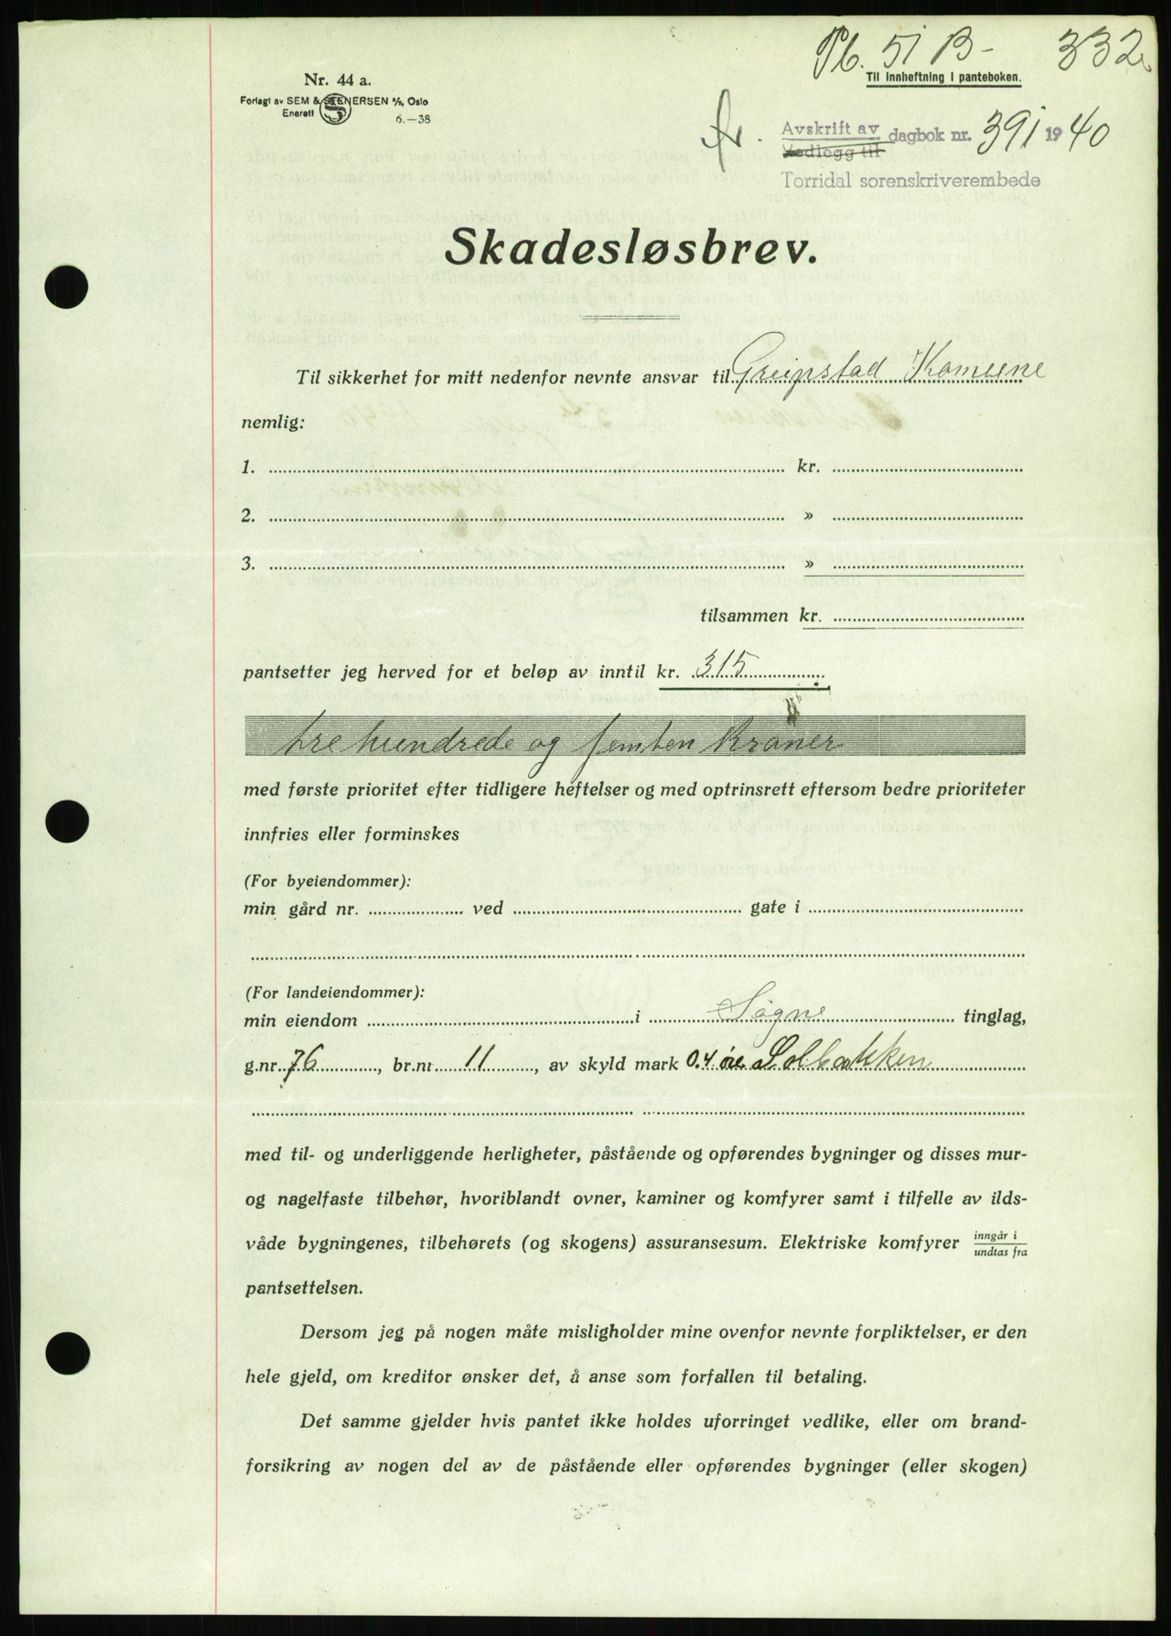 Pb. 51 B- 332
Til innheftning i panteboken.
Nr. 44 a.
Forlagt av SEM & STENERSEN A/S, Oslo
Enerett
6.—38
Avskrift av
Vedlogg til
dagbok nr. 391 1940
Torridal sorenskriverembede
Skadesløsbrev.
Til sikkerhet for mitt nedenfor nevnte ansvar til Greipstad Komune
nemlig:
1. kr.
2. »
3. »
tilsammen kr.
pantsetter jeg herved for et beløp av inntil kr. 315
tre hundrede og femten Kroner
med første prioritet efter tidligere heftelser og med optrinsrett eftersom bedre prioriteter
innfries eller forminskes
(For byeiendommer):
min gård nr. ved gate i
(For landeiendommer):
min eiendom i Søgne tinglag,
g.nr. 76, br.nr 11, av skyld mark 0.4 øre Solbakken
med til- og underliggende herligheter, påstående og opførendes bygninger og disses mur-
og nagelfaste tilbehør, hvoriblandt ovner, kaminer og komfyrer samt i tilfelle av ilds-
våde bygningenes, tilbehørets (og skogens) assuransesum. Elektriske komfyrer inngår i
undtas fra
pantsettelsen.
Dersom jeg på nogen måte misligholder mine ovenfor nevnte forpliktelser, er den
hele gjeld, om kreditor ønsker det, å anse som forfallen til betaling.
Det samme gjelder hvis pantet ikke holdes uforringet vedlike, eller om brand-
forsikring av nogen del av de påstående eller opførendes bygninger (eller skogen)